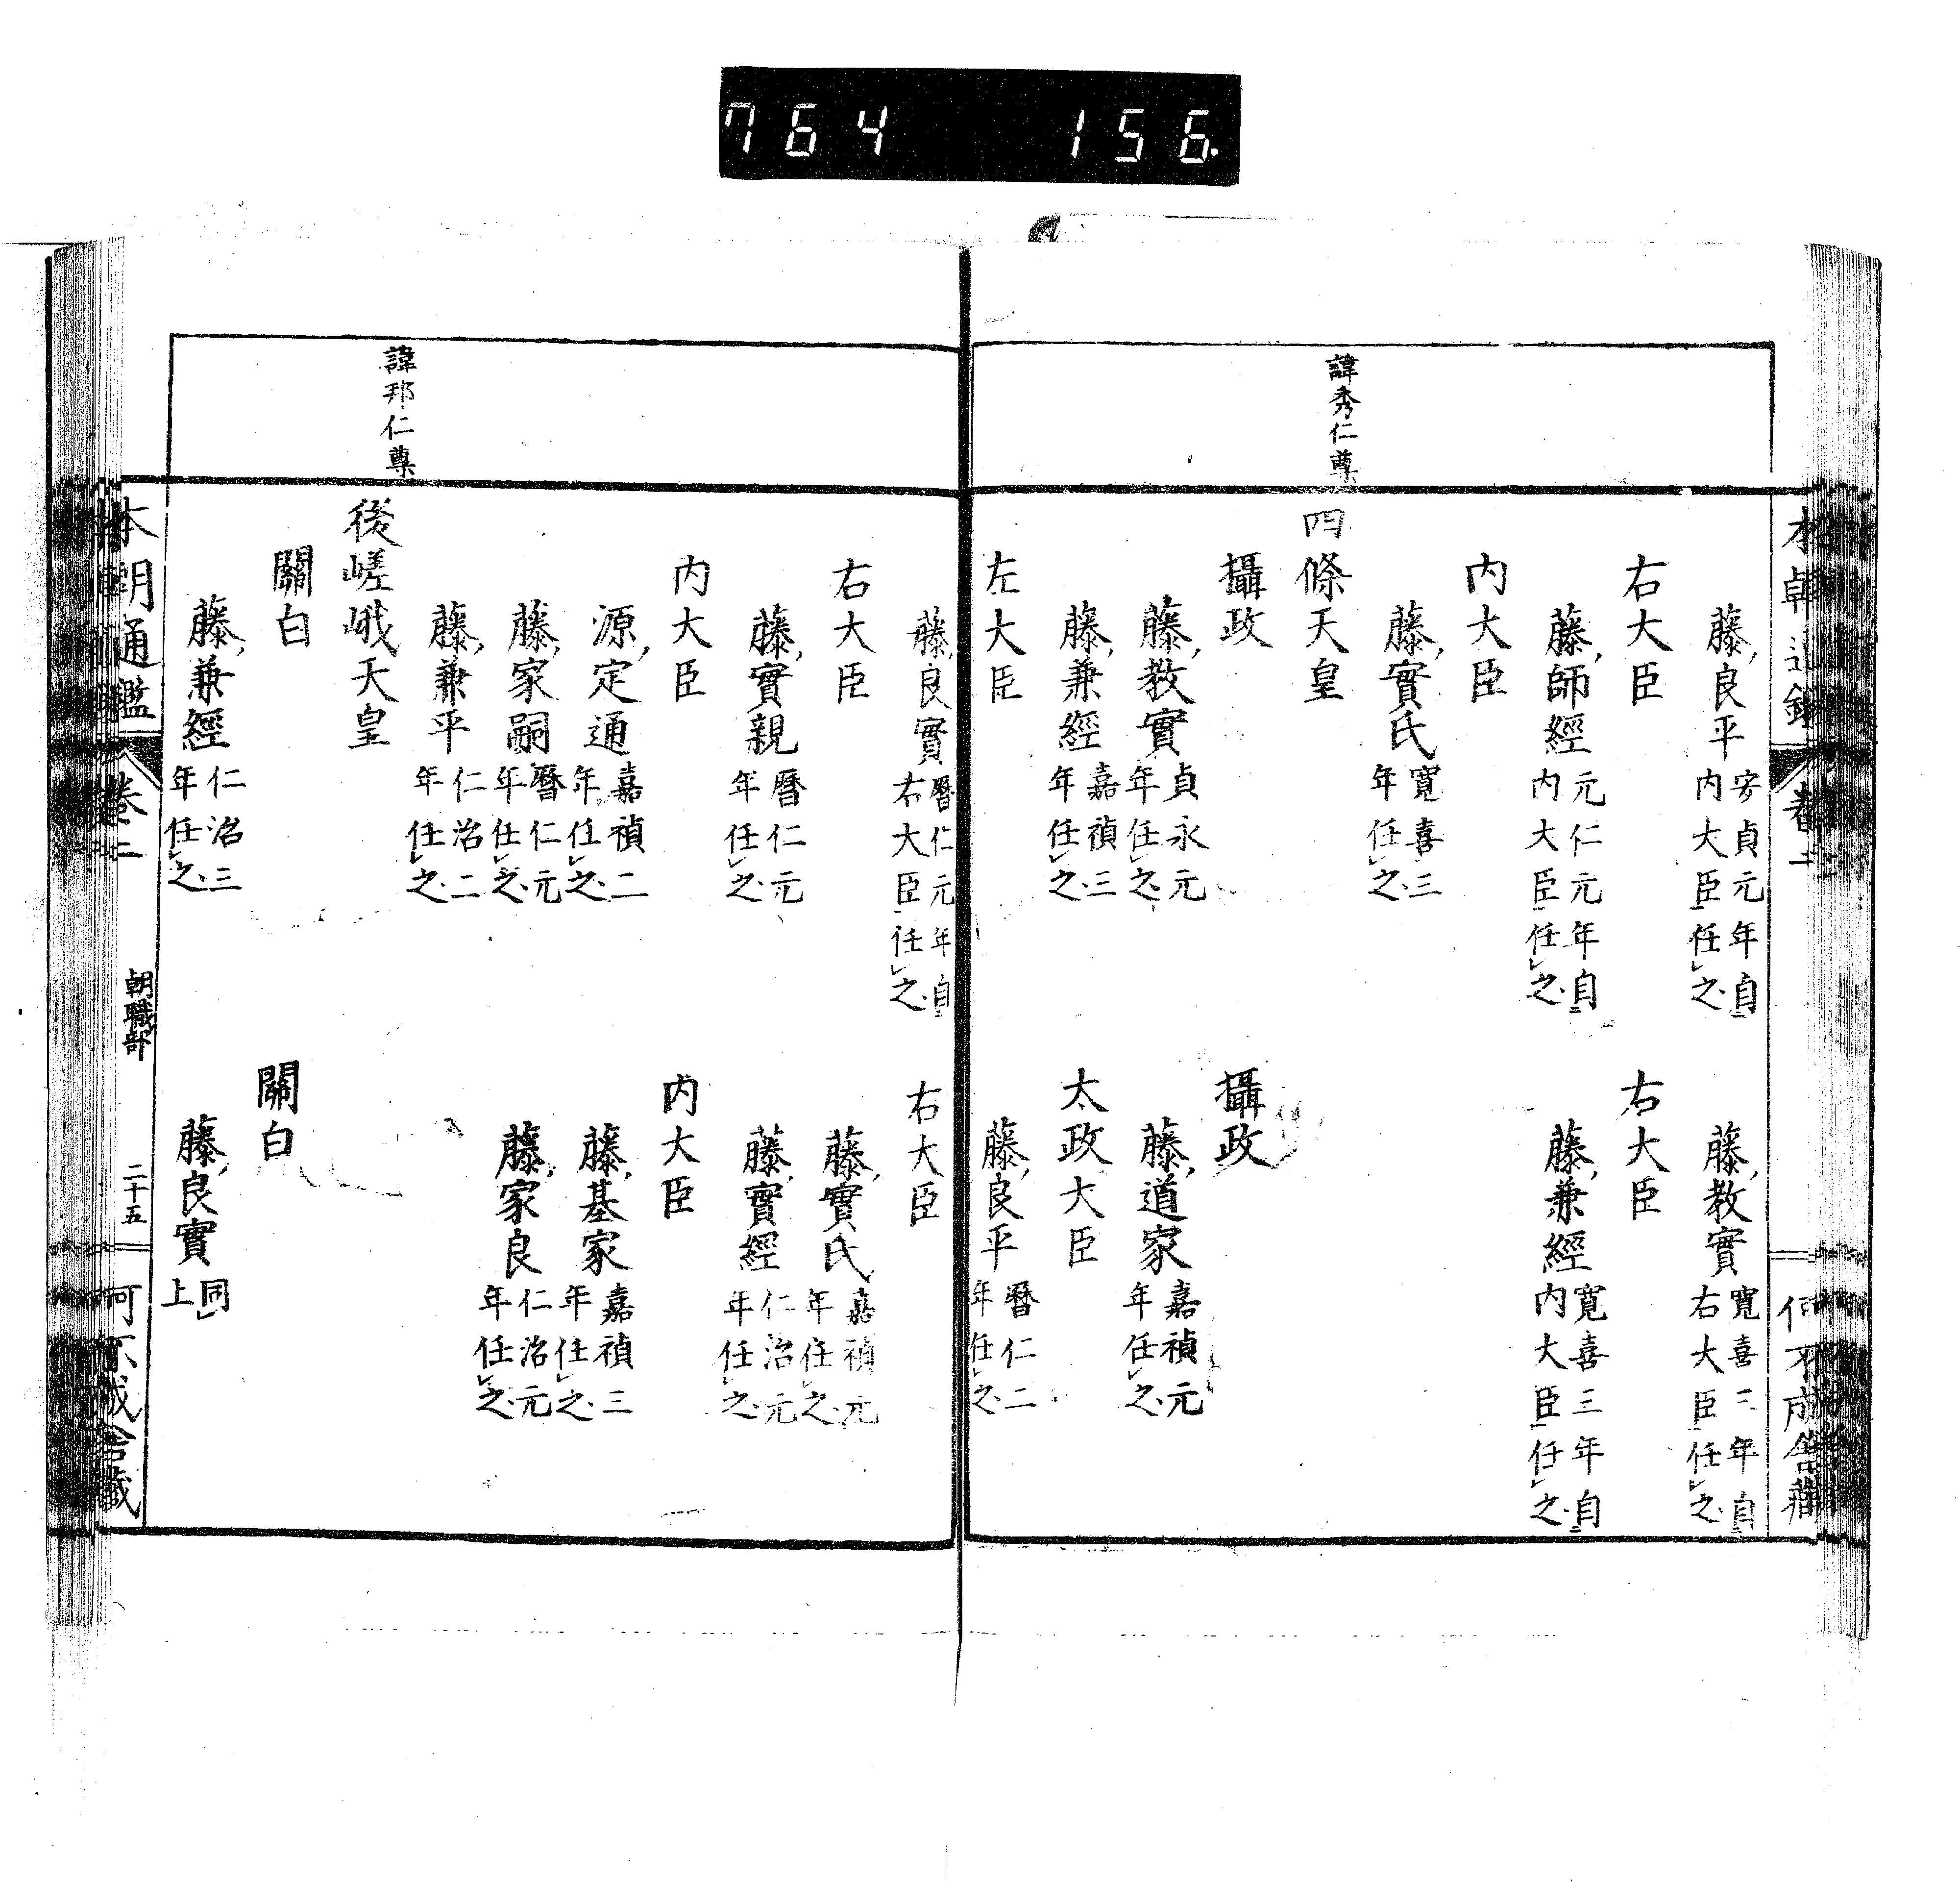 764 156
藤良平 安貞元年自内大臣任之 藤教實 寛喜三年自右大臣任之
右大臣 右大臣
藤師經 元仁元年自内大臣任之 藤兼經 寛喜三年自内大臣任之
内大臣
藤實氏 寛喜三年任之
諱秀仁尊
四條天皇
攝政 攝政
藤教實 貞永元年任之 藤道家 嘉禎元年任之
藤兼經 嘉禎三年任之 太政大臣
左大臣 藤良平 暦仁二年任之
藤良實 暦仁元年自右大臣任之 右大臣
右大臣 藤實氏 嘉禎元年任之
藤實親 暦仁元年任之 藤實經 仁治元年任之
内大臣 内大臣
源定通 嘉禎二年任之 藤基家 嘉禎三年任之
藤家嗣 暦仁元年任之 藤家良 仁治元年任之
藤兼平 仁治二年任之
諱邦仁尊
後嵯峨天皇
關白 關白
藤兼經 仁治三年任之 藤良實 同上
本朝通鑑 卷二 朝職部 二十五